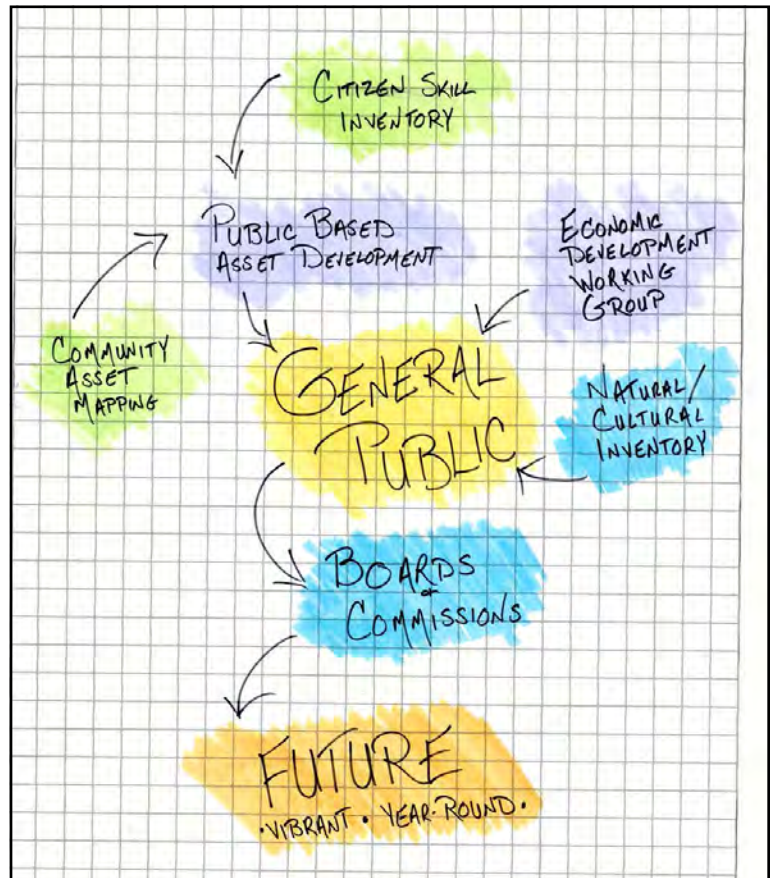 CITIZEN SKILL
INVENTORY
PUBLIC BASED
ASSET DEVELOPMENT
ECONOMIC
DEVELOPMENT
WORKING
GROUP
COMMUNITY
ASSET
MAPPING
GENERAL
PUBLIC
NATURAL/
CULTURAL
INVENTORY
BOARDS
&
COMMISSIONS
FUTURE
•VIBRANT • YEAR-ROUND•